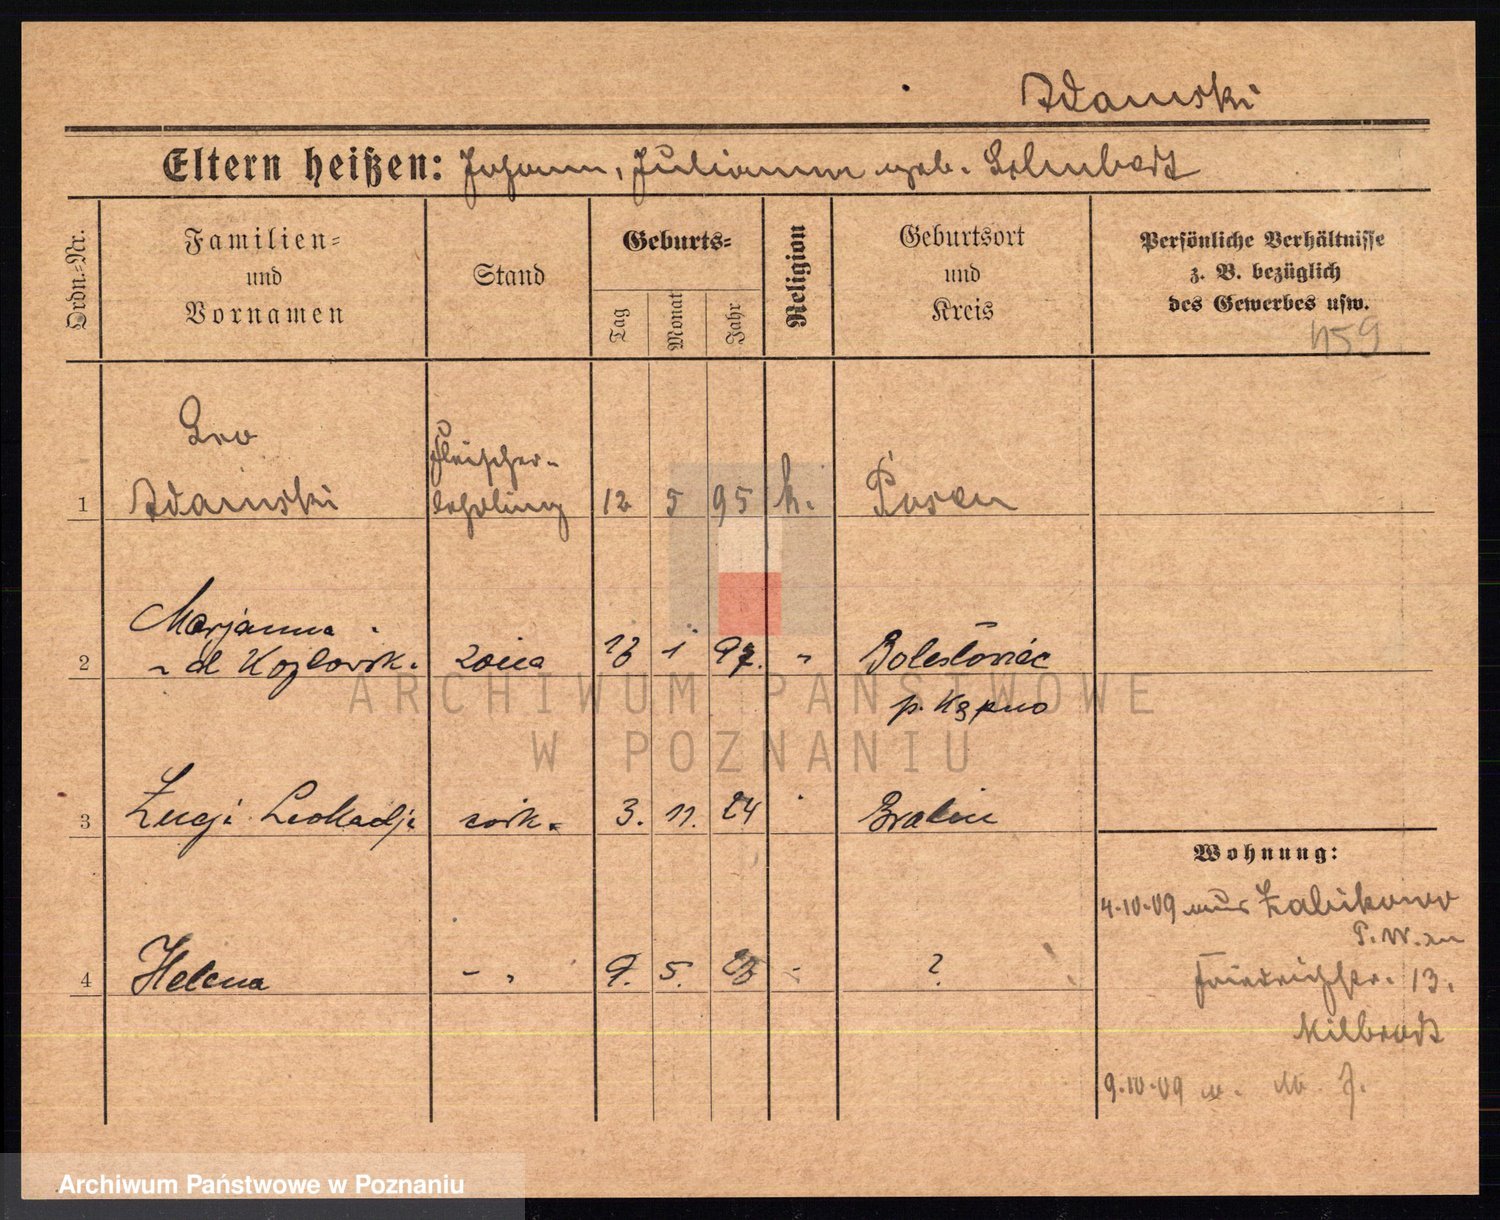 Adamski
Eltern heißen: Johann, Julianna geb.
Ordn.-Nr.
Familien-
und
Vornamen
Stand
Geburts-
Tag
Monat
Jahr
Religion
Geburtsort
und
Kreis
Persönliche Verhältnisse
z. B. bezüglich
des Gewerbes usw.
459
1
Leo
Adamski
Fleischer-
lehrling
12 5 95 k.
Posen
2
Marjanna
z d. Kozłowsk.
żona
1 97.
Bolesławiec
p. Kępno
3
Łucja Leokadja
córk.
3. 11. 24
Bralin
4
Helena
- "
9. 5.
?
Wohnung:
4.10.09 aus Żabikowo
P. W. zu
Friedrichstr. 13.
Milbradt
9.10.09 n.
ARCHIWUM PAŃSTWOWE
W POZNANIU
Archiwum Państwowe w Poznaniu